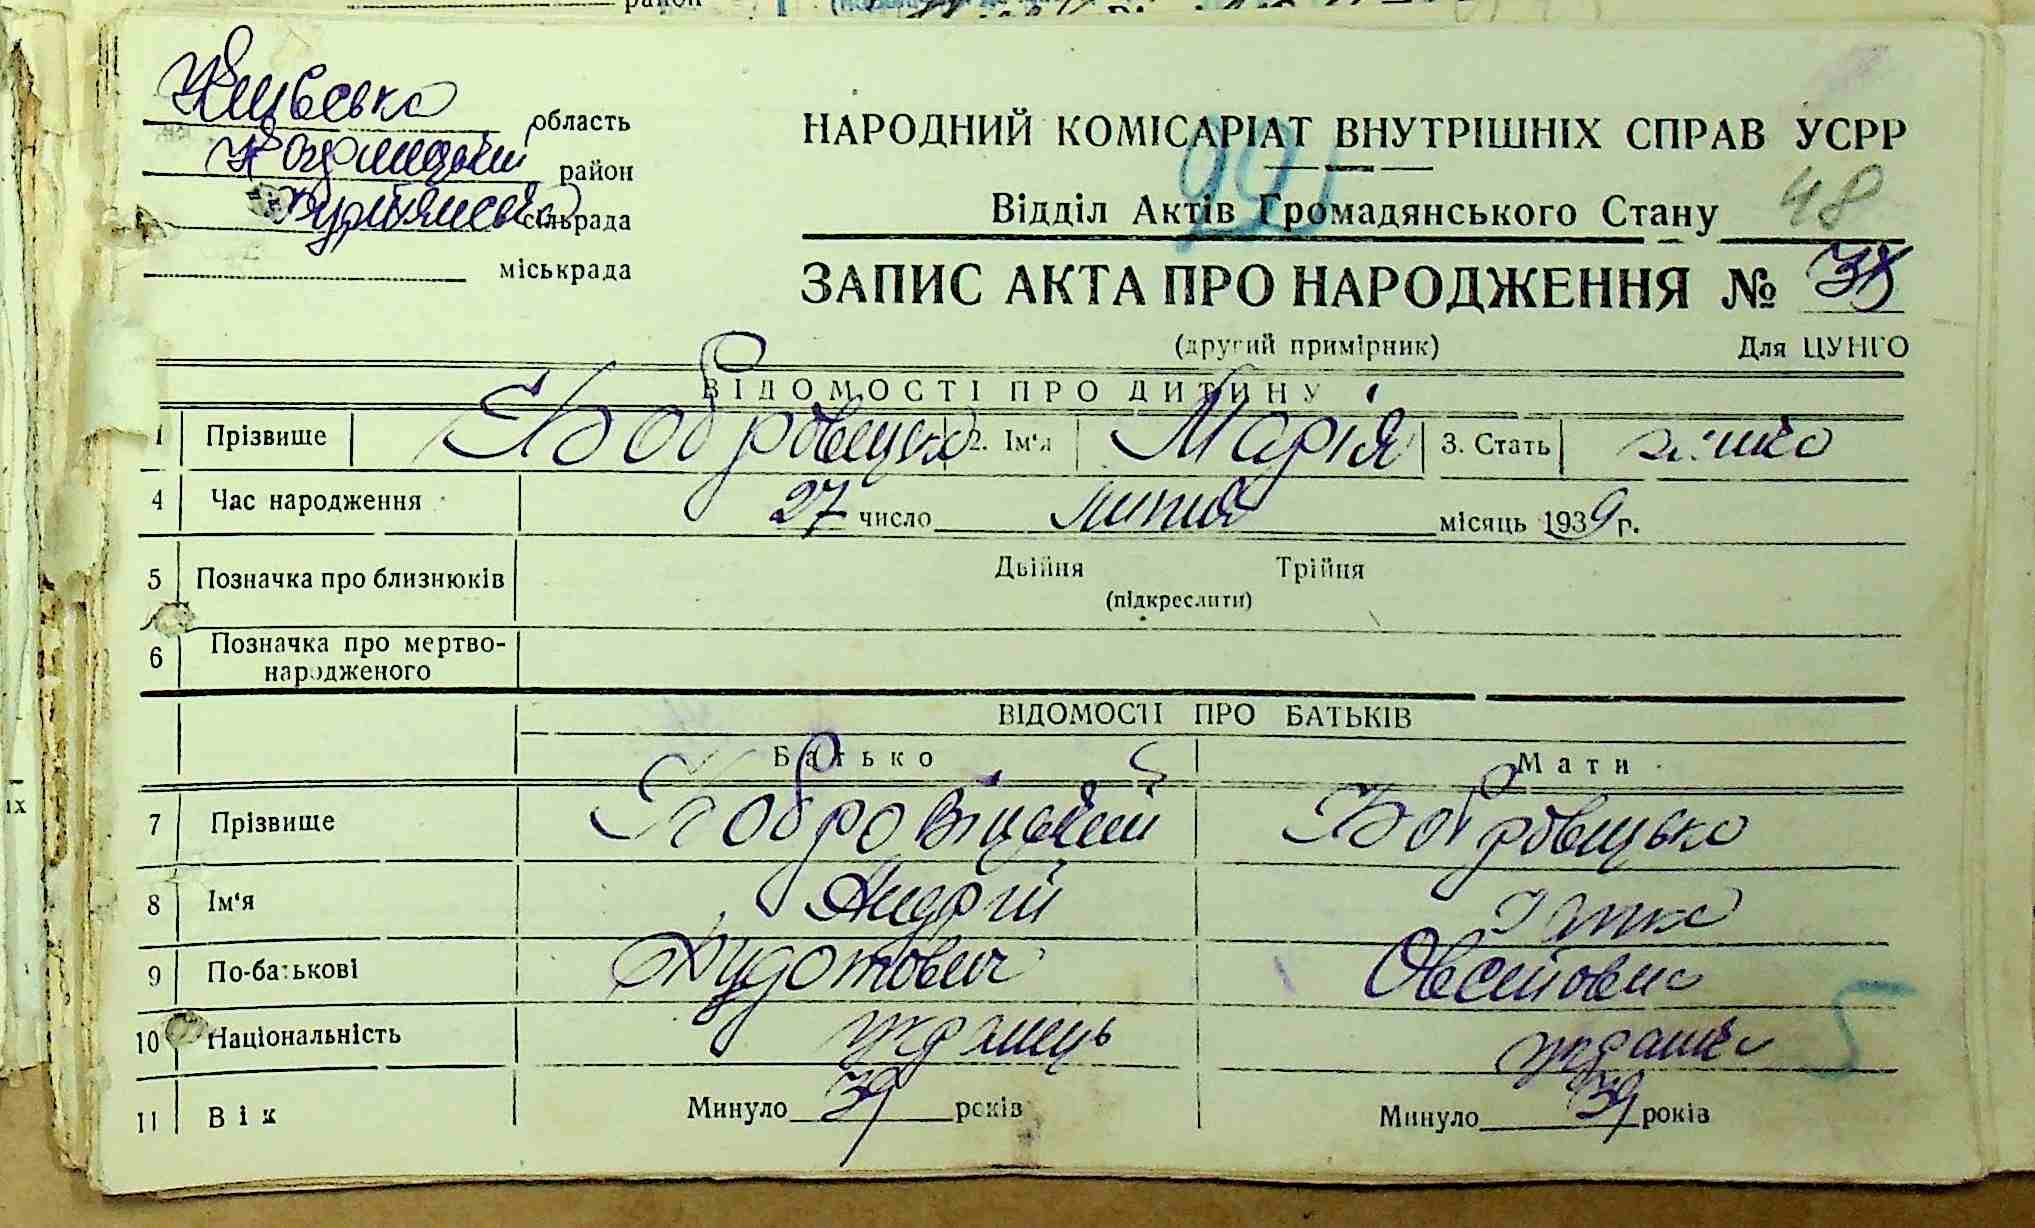 Київська область
район
сільрада
міськрада
НАРОДНИЙ КОМІСАРІАТ ВНУТРІШНІХ СПРАВ УСРР
991
Відділ Актів Громадянського Стану 48
ЗАПИС АКТА ПРО НАРОДЖЕННЯ №
(другий примірник) Для ЦУНГО
ВІДОМОСТІ ПРО ДИТИНУ
1 Прізвище Бобровицька 2. Ім'я Марія 3. Стать жіноч
4 Час народження 27 число липня місяць 1939 г.
5 Позначка про близнюків Двійня Трійня
(підкреслити)
6 Позначка про мертвонародженого
ВІДОМОСТІ ПРО БАТЬКІВ
Батько Мати
7 Прізвище Бобровіцький Бобровицька
8 Ім'я Андрій Ганна
9 По-батькові Овсейовна
10 Національність українець українка
5
11 Вік Минуло 39 років Минуло 39 років
іх